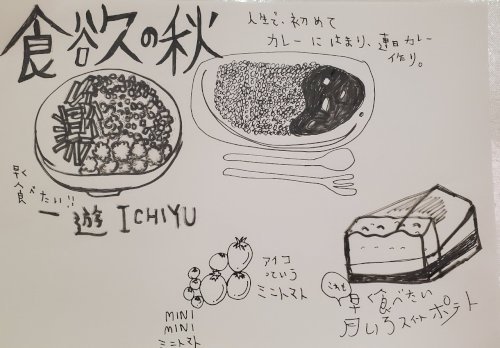 食欲の秋
人生で、初めて
カレーにはまり、連日カレー
作り。
早く
食べたい!!
一遊 ICHIYU
アイコ
っていう
ミニトマト
MINI
MINI
ミニトマト
これも
早く食べたい
月いろスイートポテト